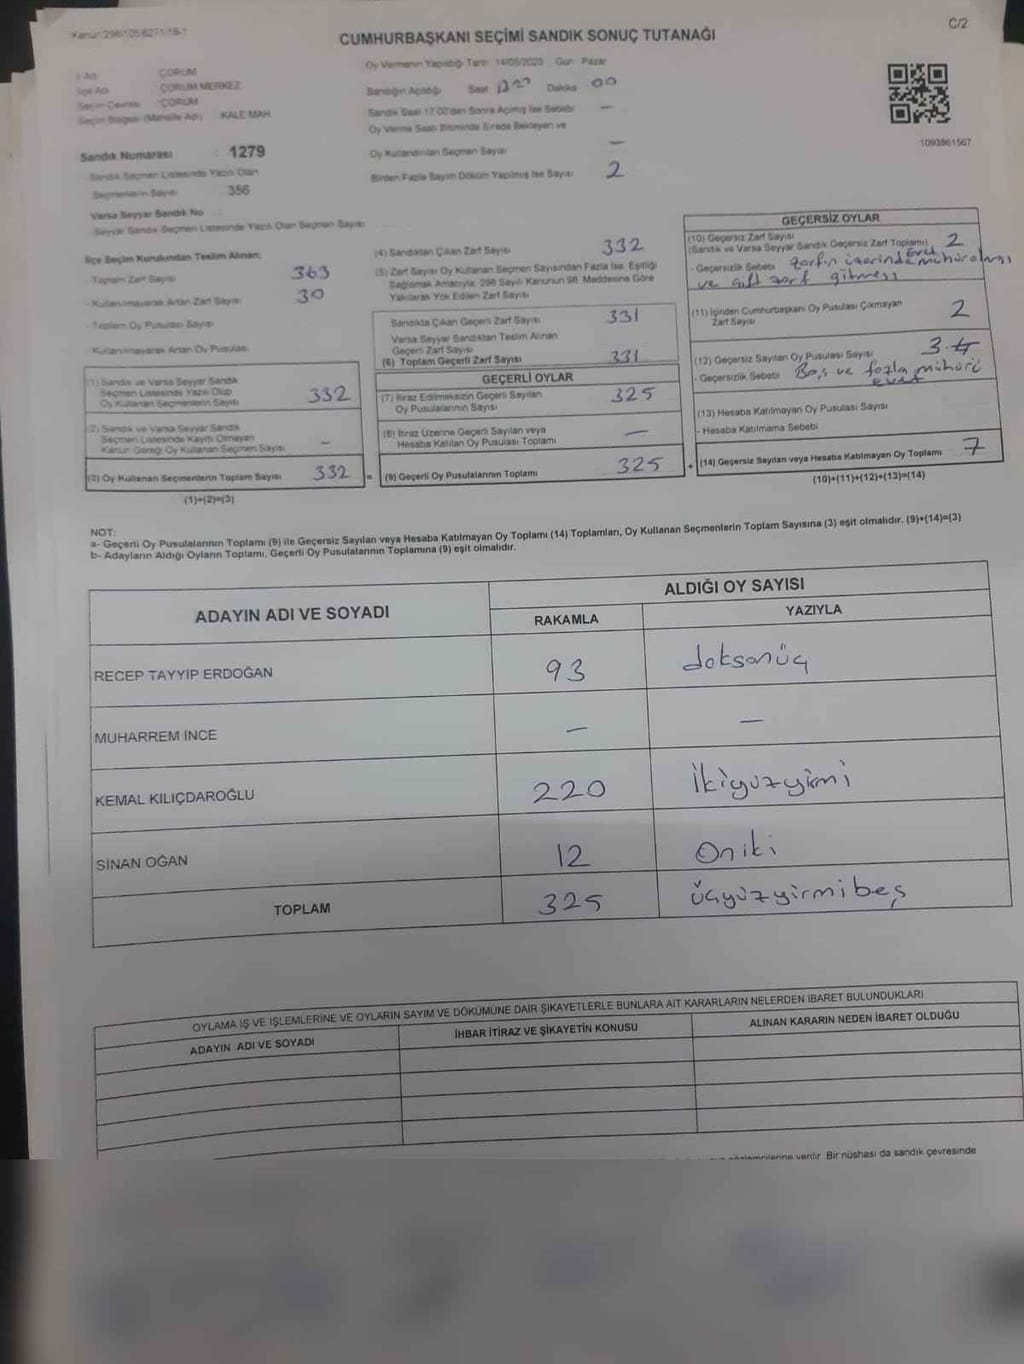 C/2
CUMHURBAŞKANI SEÇİMİ SANDIK SONUÇ TUTANAĞI
İl Adı : ÇORUM
İlçe Adı : ÇORUM MERKEZ
Seçim Çevresi : ÇORUM
Seçim Bölgesi (Mahalle Adı) : KALE MAH
Sandık Numarası : 1279
Sandık Seçmen Listesinde Yazılı Olan
Seçmenlerin Sayısı : 356
Varsa Seyyar Sandık No
Seyyar Sandık Seçmen Listesinde Yazılı Olan Seçmen Sayısı
Oy Vermenin Yapıldığı Tarih 14/05/2023 Gün Pazar
Sandığın Açıldığı Saat Dakika 00
Sandık Saat 17:00'den Sonra Açılmış İse Sebebi —
Oy Verme Saati Bitiminde Sırada Bekleyen ve
Oy Kullandırılan Seçmen Sayısı —
Birden Fazla Sayım Döküm Yapılmış İse Sayısı 2
1093861567
İlçe Seçim Kurulundan Teslim Alınan;
Toplam Zarf Sayısı 363
Kullanılmayarak Artan Zarf Sayısı 30
Toplam Oy Pusulası Sayısı
Kullanılmayarak Artan Oy Pusulası
(1) Sandık ve Varsa Seyyar Sandık
Seçmen Listesinde Yazılı Olup
Oy Kullanan Seçmenlerin Sayısı 332
(2) Sandık ve Varsa Seyyar Sandık
Seçmen Listesinde Kayıtlı Olmayan
Kanun Gereği Oy Kullanan Seçmen Sayısı –
(3) Oy Kullanan Seçmenlerin Toplam Sayısı 332 =
(1)+(2)=(3)
(4) Sandıktan Çıkan Zarf Sayısı 332
(5) Zarf Sayısı Oy Kullanan Seçmen Sayısından Fazla İse, Eşitliği
Sağlamak Amacıyla; 298 Sayılı Kanunun 98. Maddesine Göre
Yakılarak Yok Edilen Zarf Sayısı
Sandıkta Çıkan Geçerli Zarf Sayısı 331
Varsa Seyyar Sandıktan Teslim Alınan
Geçerli Zarf Sayısı
(6) Toplam Geçerli Zarf Sayısı 331
GEÇERLİ OYLAR
(7) İtiraz Edilmeksizin Geçerli Sayılan
Oy Pusulalarının Sayısı 325
(8) İtiraz Üzerine Geçerli Sayılan veya
Hesaba Katılan Oy Pusulası Toplamı —
(9) Geçerli Oy Pusulalarının Toplamı 325 +
GEÇERSİZ OYLAR
(10) Geçersiz Zarf Sayısı
(Sandık ve Varsa Seyyar Sandık Geçersiz Zarf Toplamı) 2
- Geçersizlik Sebebi zarfın üzerinde Evet mühürü olması
ve çift zarf gitmesi
(11) İçinden Cumhurbaşkanı Oy Pusulası Çıkmayan
Zarf Sayısı 2
(12) Geçersiz Sayılan Oy Pusulası Sayısı 3
- Geçersizlik Sebebi Boş ve fazla mühürü
evet
(13) Hesaba Katılmayan Oy Pusulası Sayısı
- Hesaba Katılmama Sebebi
(14) Geçersiz Sayılan veya Hesaba Katılmayan Oy Toplamı 7
(10)+(11)+(12)+(13)=(14)
NOT:
a- Geçerli Oy Pusulalarının Toplamı (9) ile Geçersiz Sayılan veya Hesaba Katılmayan Oy Toplamı (14) Toplamları, Oy Kullanan Seçmenlerin Toplam Sayısına (3) eşit olmalıdır. (9)+(14)=(3)
b- Adayların Aldığı Oyların Toplamı, Geçerli Oy Pusulalarının Toplamına (9) eşit olmalıdır.
ADAYIN ADI VE SOYADI
ALDIĞI OY SAYISI
RAKAMLA YAZIYLA
RECEP TAYYİP ERDOĞAN 93 doksanüç
MUHARREM İNCE — —
KEMAL KILIÇDAROĞLU 220 İkiyüzyirmi
SİNAN OĞAN 12 Oniki
TOPLAM 325 üçyüzyirmibeş
OYLAMA İŞ VE İŞLEMLERİNE VE OYLARIN SAYIM VE DÖKÜMÜNE DAİR ŞİKAYETLERLE BUNLARA AİT KARARLARIN NELERDEN İBARET BULUNDUKLARI
ADAYIN ADI VE SOYADI İHBAR İTİRAZ VE ŞİKAYETİN KONUSU ALINAN KARARIN NEDEN İBARET OLDUĞU
verilir. Bir nüshası da sandık çevresinde